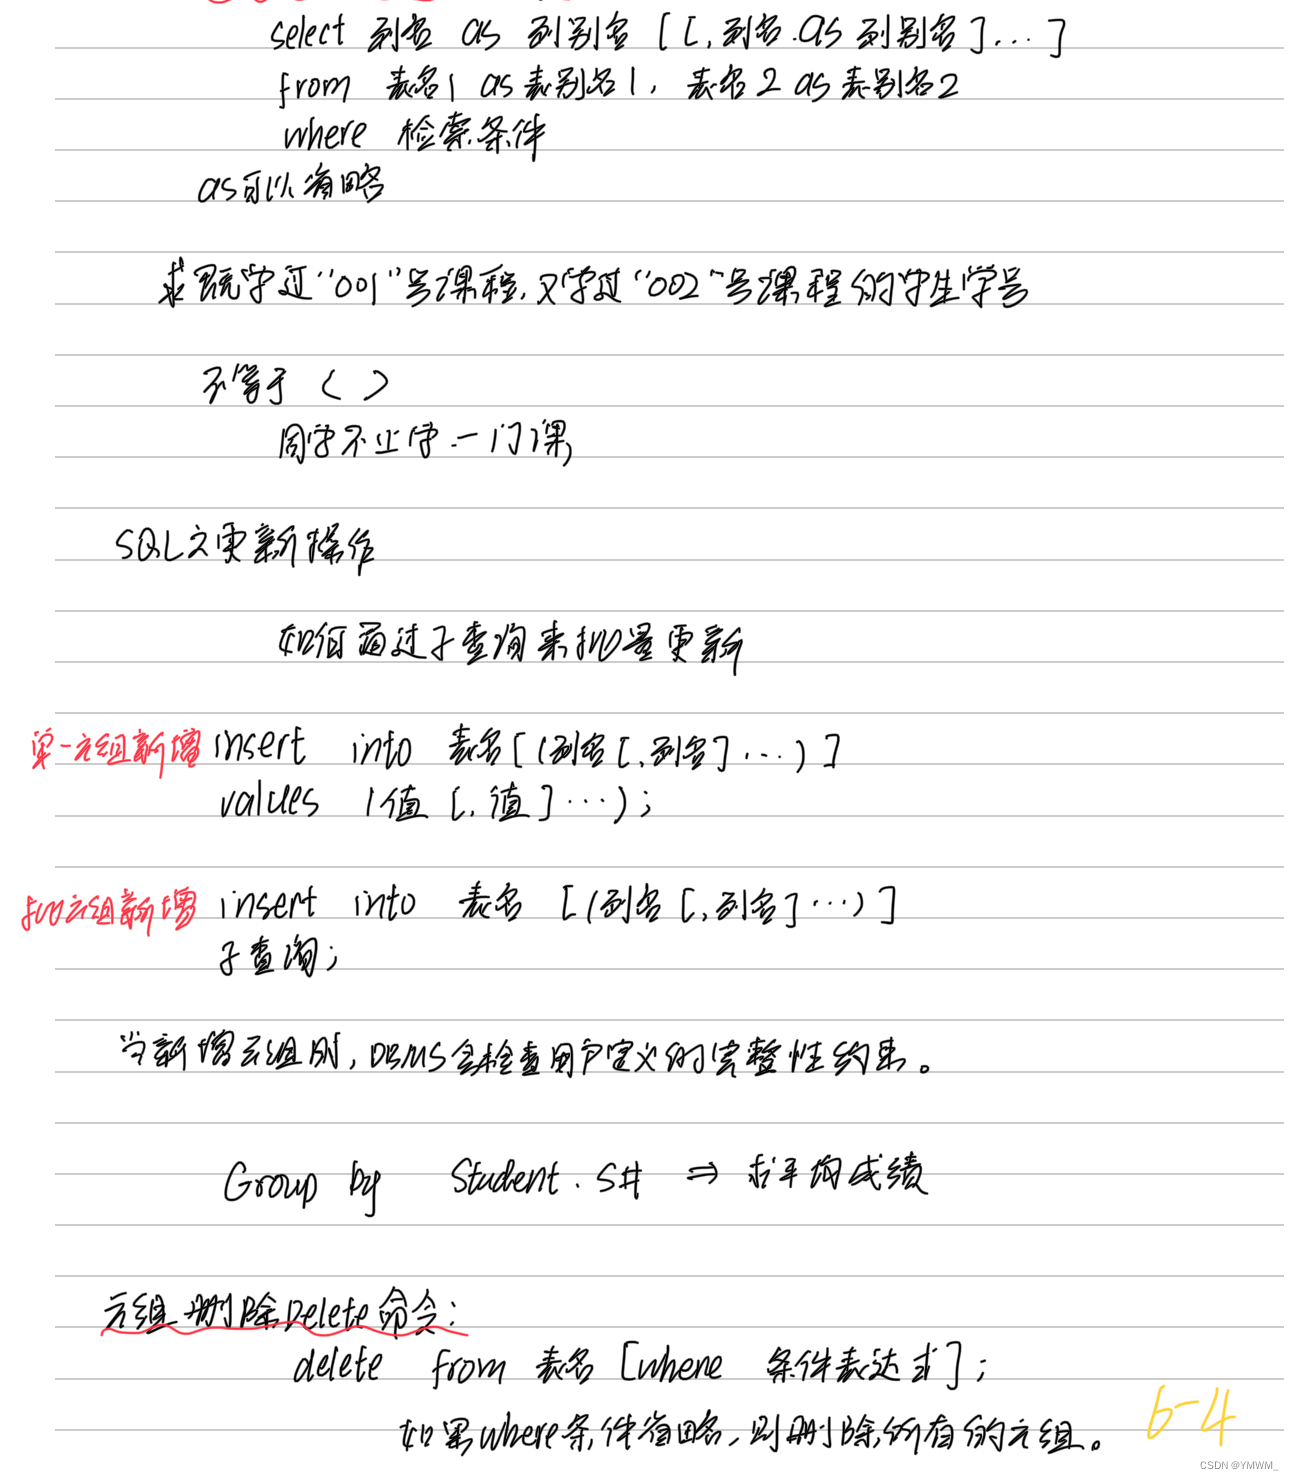 select 列名 as 列别名 [[,列名 as 列别名]...]
from 表名1 as 表别名1, 表名2 as 表别名2
where 检索条件
as可以省略
求既学过"001"号课程,又学过"002"号课程的学生学号
不等于 < >
同学不止学一门课
SQL之更新操作
如何通过子查询来批量更新
单一元组新增 insert into 表名[(列名[,列名]...)]
values (值[,值]...);
批元组新增 insert into 表名 [(列名[,列名]...)]
子查询;
当新增元组时,DBMS会检查用户定义的完整性约束。
Group by Student.S# ⇒ 求平均成绩
元组删除Delete命令:
delete from 表名 [where 条件表达式];
如果where条件省略,则删除所有的元组。
6-4
CSDN @YMWM_